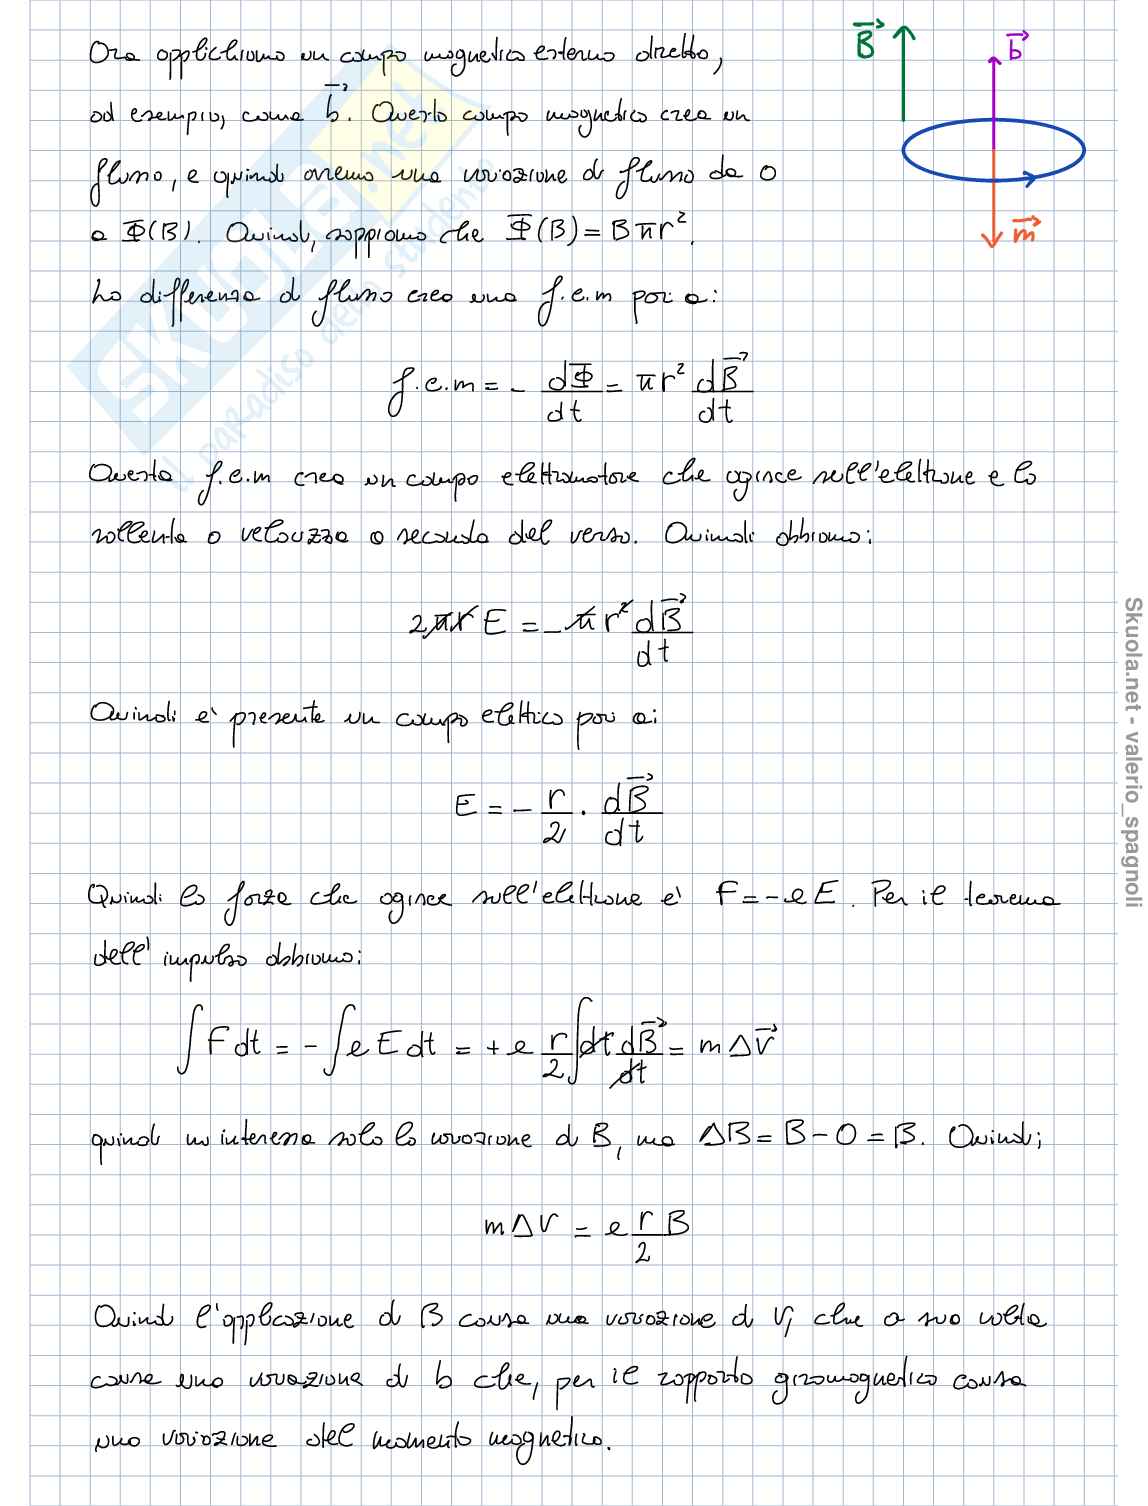 Ora applichiamo un campo magnetico esterno diretto,
ad esempio, come b⃗. Questo campo magnetico crea un
flusso, e quindi avremo una variazione di flusso da 0
a Φ(B). Quindi, sappiamo che Φ(B) = Bπr².
La differenza di flusso crea una f.e.m pari a:
B⃗
b⃗
m⃗
f.e.m = - dΦ/dt = πr² dB⃗/dt
Questa f.e.m crea un campo elettromotore che agisce sull'elettrone e lo
rallenta o velocizza a seconda del verso. Quindi abbiamo:
2πr E = - πr² dB⃗/dt
Quindi e' presente un campo elettrico pari a:
E = - r/2 · dB⃗/dt
Quindi la forza che agisce sull'elettrone e' F = - eE. Per il teorema
dell'impulso abbiamo:
∫F dt = - ∫e E dt = + e r/2 ∫dt dB⃗/dt = m Δv⃗
quindi mi interessa solo la variazione di B, ma ΔB = B - 0 = B. Quindi;
m Δv = e r/2 B
Quindi l'applicazione di B causa una variazione di v, che a sua volta
causa una variazione di b che, per il rapporto giromagnetico causa
una variazione del momento magnetico.
SKUOLA.net
il paradiso dello studente
Skuola.net - valerio_spagnoli